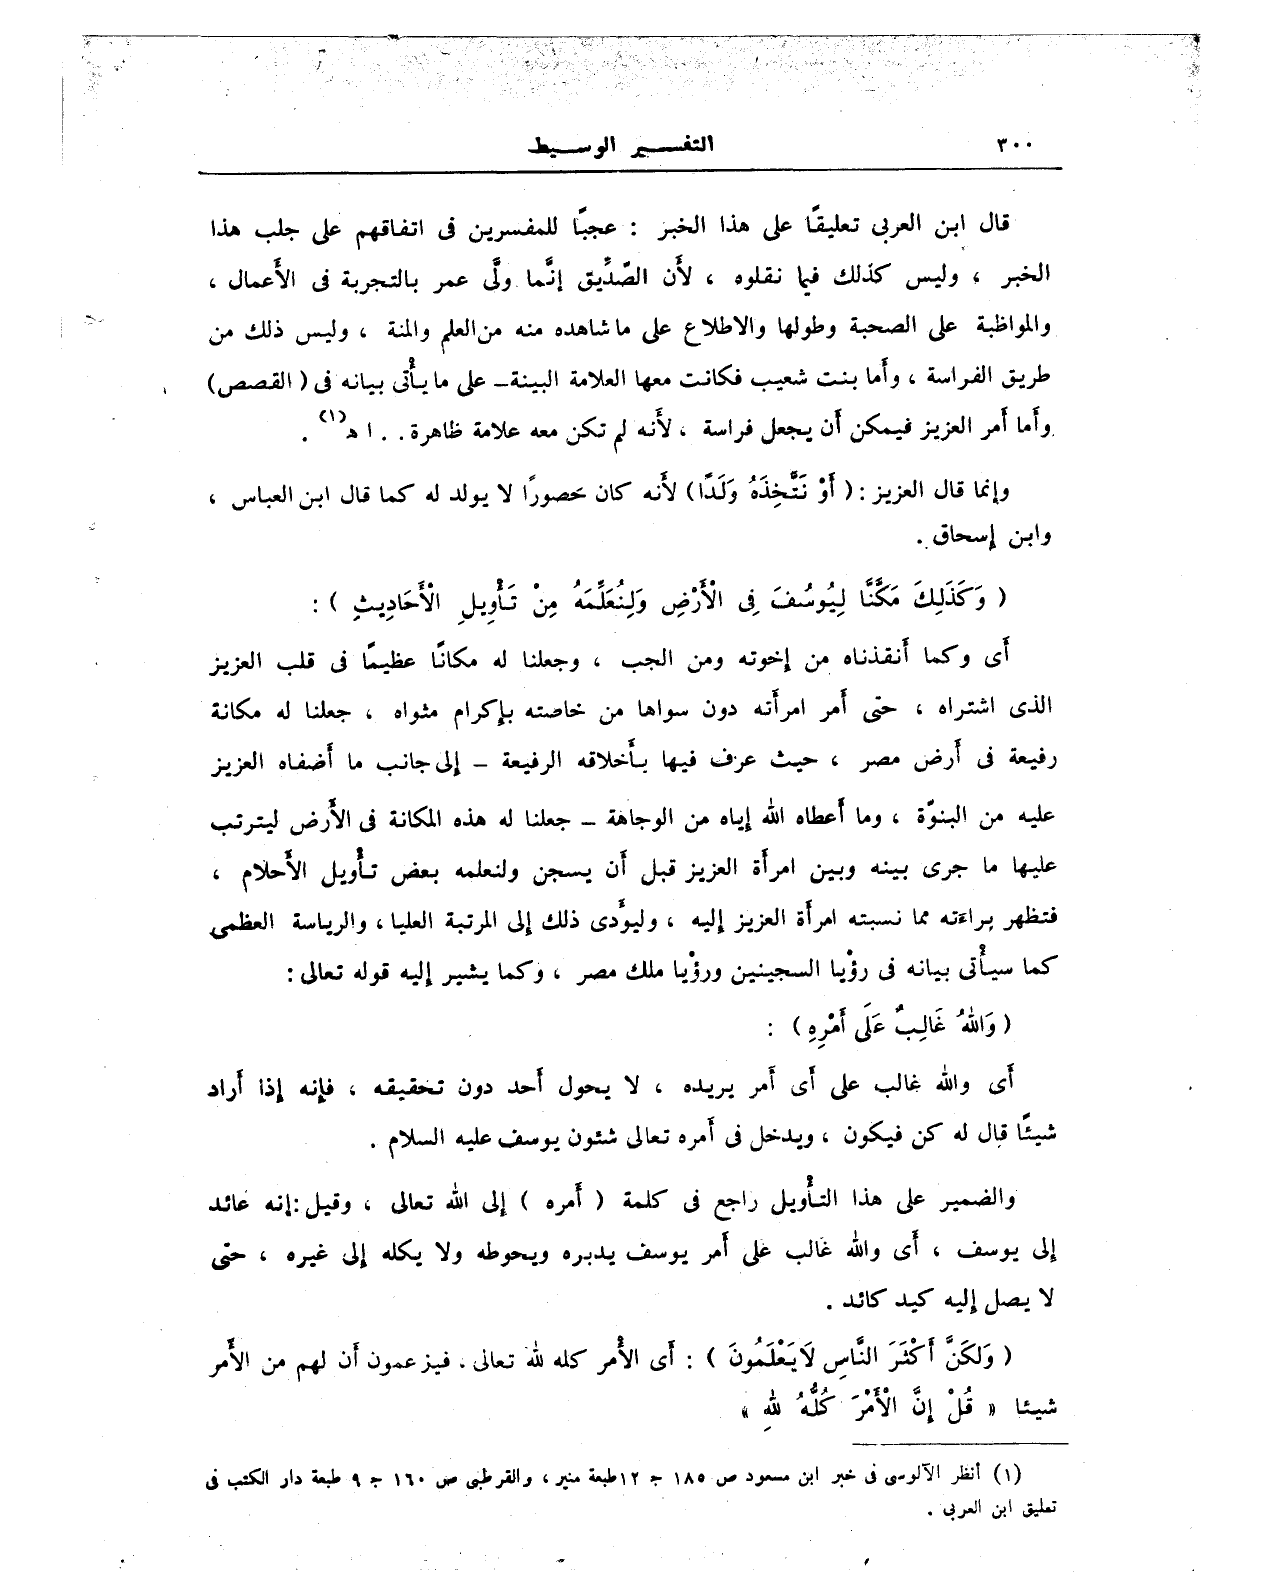 ٣٠٠
التفسير الوسيط
قال ابن العربى تعليقًا على هذا الخبر : عجبًا للمفسرين فى اتفاقهم على جلب هذا
الخبر ، وليس كذلك فيما نقلوه ، لأَن الصّدِّيق إنَّما ولَّى عمر بالتجربة فى الأَعمال ،
والمواظبة على الصحبة وطولها والاطلاع على ما شاهده منه من العلم والمنة ، وليس ذلك من
طريق الفراسة ، وأَما بنت شعيب فكانت معها العلامة البينة - على ما يأْتى بيانه فى ( القصص )
وأَما أمر العزيز فيمكن أَن يجعل فراسة ، لأَنه لم تكن معه علامة ظاهرة . . ا ه (١) .
وإنما قال العزيز : ( أَوْ نَتَّخِذَهُ وَلَدًا ) لأَنه كان حصورًا لا يولد له كما قال ابن العباس ،
وابن إسحاق .
( وَكَذَلِكَ مَكَّنَّا لِيُوسُفَ فِى الْأَرْضِ وَلِنُعَلِّمَهُ مِنْ تَأْوِيلِ الْأَحَادِيثِ ) :
أَى وكما أَنقذناه من إخوته ومن الجب ، وجعلنا له مكانًا عظيمًا فى قلب العزيز
الذى اشتراه ، حتى أَمر امرأَته دون سواها من خاصته بإكرام مثواه ، جعلنا له مكانة
رفيعة فى أَرض مصر ، حيث عرف فيها بأَخلاقه الرفيعة - إلى جانب ما أَضفاه العزيز
عليه من البنوّة ، وما أَعطاه الله إياه من الوجاهة - جعلنا له هذه المكانة فى الأَرض ليترتب
عليها ما جرى بينه وبين امرأَة العزيز قبل أَن يسجن ولنعلمه بعض تأْويل الأَحلام ،
فتظهر براءته مما نسبته امرأَة العزيز إليه ، وليؤَدى ذلك إلى المرتبة العليا ، والرياسة العظمى
كما سيأْتى بيانه فى رؤْيا السجينين ورؤْيا ملك مصر ، وكما يشير إليه قوله تعالى :
( وَاللهُ غَالِبٌ عَلَى أَمْرِهِ ) :
أَى والله غالب على أَى أَمر يريده ، لا يحول أَحد دون تحقيقه ، فإنه إذا أَراد
شيئًا قال له كن فيكون ، ويدخل فى أَمره تعالى شئون يوسف عليه السلام .
والضمير على هذا التأْويل راجع فى كلمة ( أَمره ) إلى الله تعالى ، وقيل : إنه عائد
إلى يوسف ، أَى والله غالب على أَمر يوسف يدبره ويحوطه ولا يكله إلى غيره ، حتى
لا يصل إليه كيد كائد .
( وَلَكَنَّ أَكْثَرَ النَّاسِ لَايَعْلَمُونَ ) : أَى الأَمر كله لله تعالى ، فيزعمون أَن لهم من الأَمر
شيئا « قُلْ إِنَّ الْأَمْرَ كُلَّهُ لِلهِ »
(١) أنظر الآلوسى فى خبر ابن مسعود ص ١٨٥ ج ١٢ طبعة منير ، والقرطبى ص ١٦٠ ج ٩ طبعة دار الكتب فى
تعليق ابن العربى .